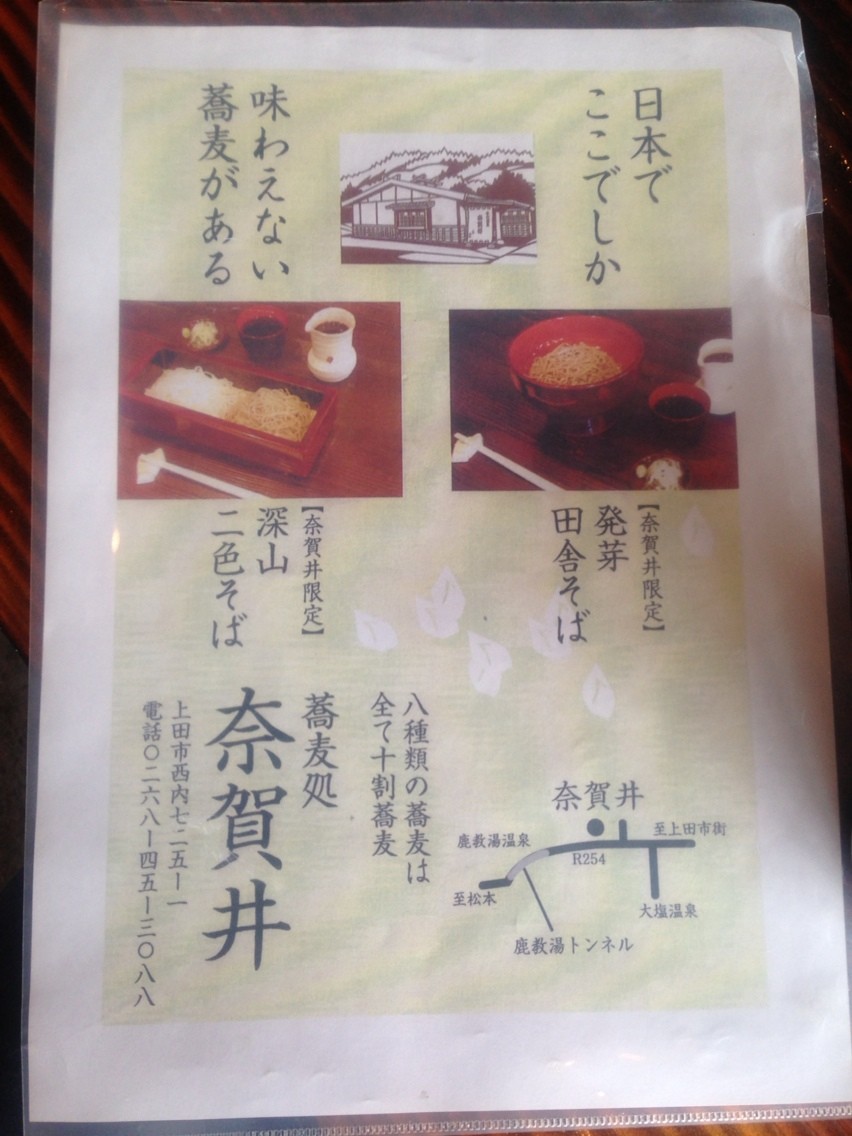 日本で
ここでしか
味わえない
蕎麦がある
【奈賀井限定】
発芽
田舎そば
【奈賀井限定】
深山
二色そば
八種類の蕎麦は
全て十割蕎麦
蕎麦処
奈賀井
上田市西内七二五ー一
電話〇二六八ー四五ー三〇八八
奈賀井
至上田市街
鹿教湯温泉
R254
至松本
大塩温泉
鹿教湯トンネル